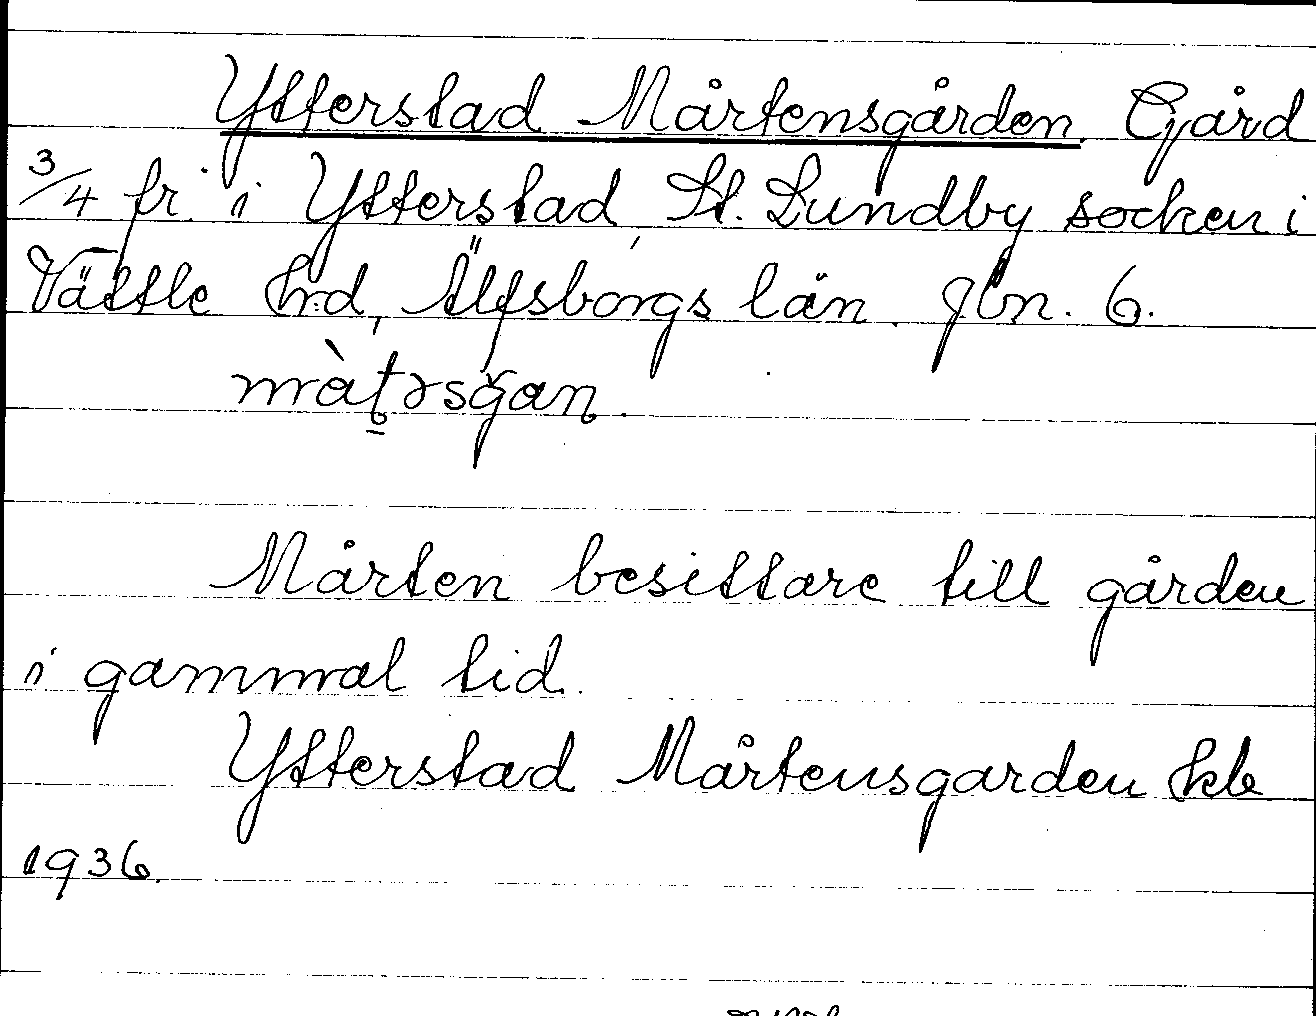 Ytterstad Mårtensgården. Gård
3/4 fr. i Ytterstad, St. Lundby socken i
Vättle hrd, Älfsborgs län. gbn. 6.
Mårten besittare till gården
i gammal tid.
Ytterstad Mårtensgarden Ekb
1936.